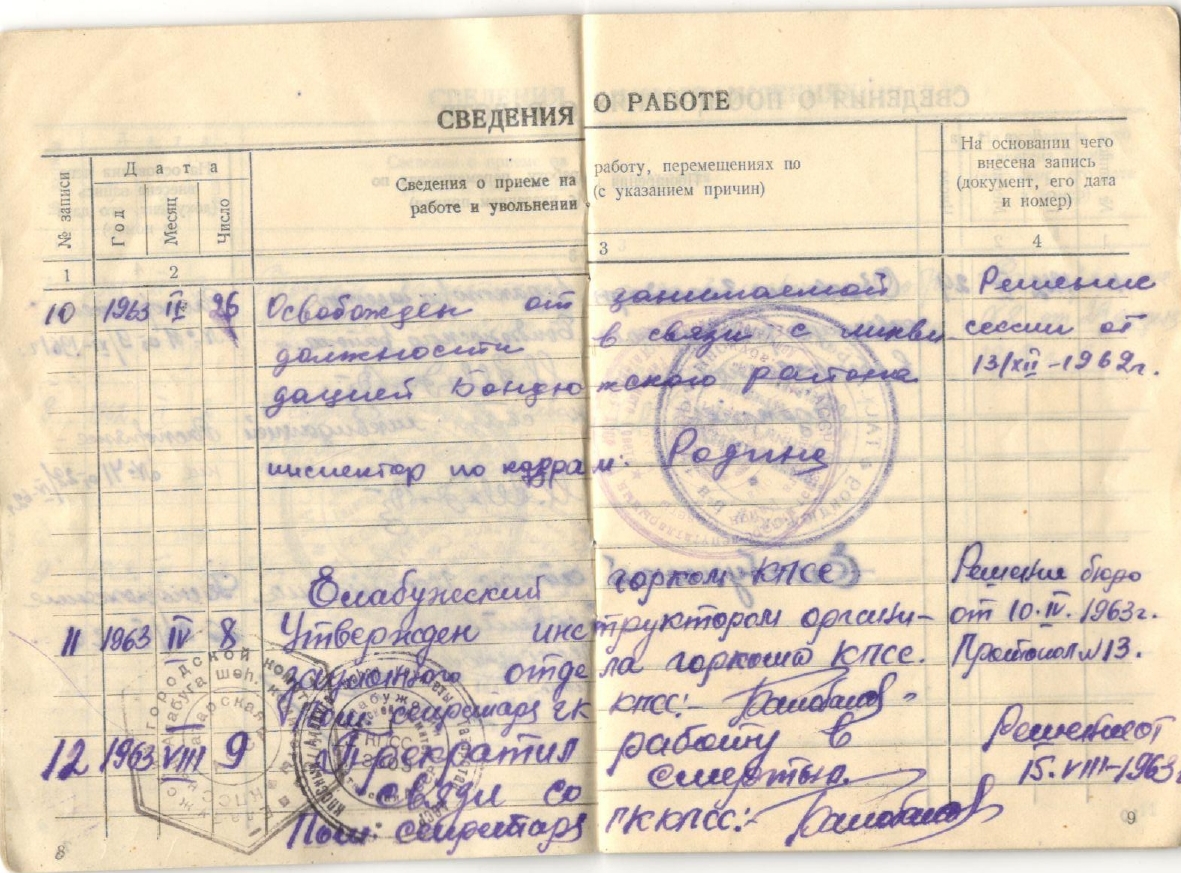 СВЕДЕНИЯ О РАБОТЕ
№ записи
Дата
Год
Месяц
Число
Сведения о приеме на работу, перемещениях по
работе и увольнении (с указанием причин)
На основании чего
внесена запись
(документ, его дата
и номер)
1 2 3 4
10 1963 26 Освобожден от занимаемой Решение
должности в связи с ликви- сессии от
дацией Бондюжского района 13/XII-1962г.
инспектор по кадрам: Родина
Елабужский горком КПСС Решение бюро
11 1963 IV 8 Утвержден инструктором органи- от 10.IV.1963г.
зационного отдела горкома КПСС. Протокол №13.
Пом. секретаря ГК КПСС:-
12 1963 VIII 9 Прекратил работу в Решение от
связи со смертью. 15.VIII-1963г
Пом. секретаря ГК КПСС:-
8 9